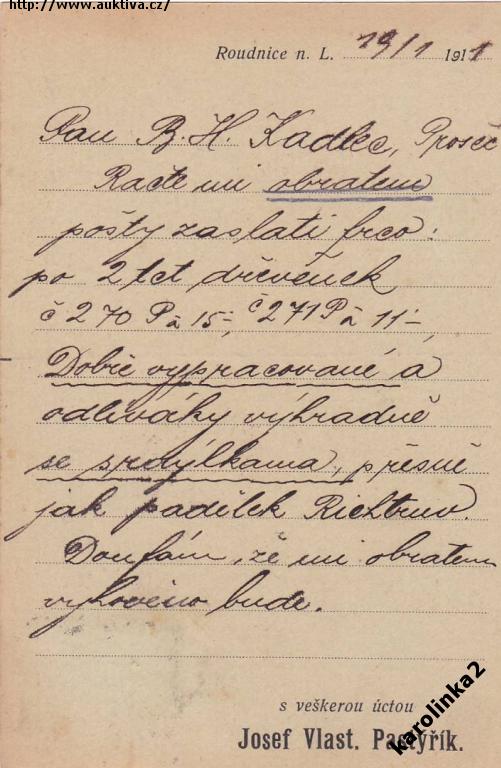 http://www.auktiva.cz/
Roudnice n. L. 19/1 1911
Pan B. H. Kadlec, Proseč
Račte mi obratem
pošty zaslati frco:
po 2 tct dřevěnek
č 270 P à 15-, č 271 P à 11-,
Dobře vypracované a
odliváky výhradně
se srdýlkama, přesně
jak padilek
Doufám, že mi obratem
vyhověno bude.
s veškerou úctou
Josef Vlast. Pastyřík.
karolinka2